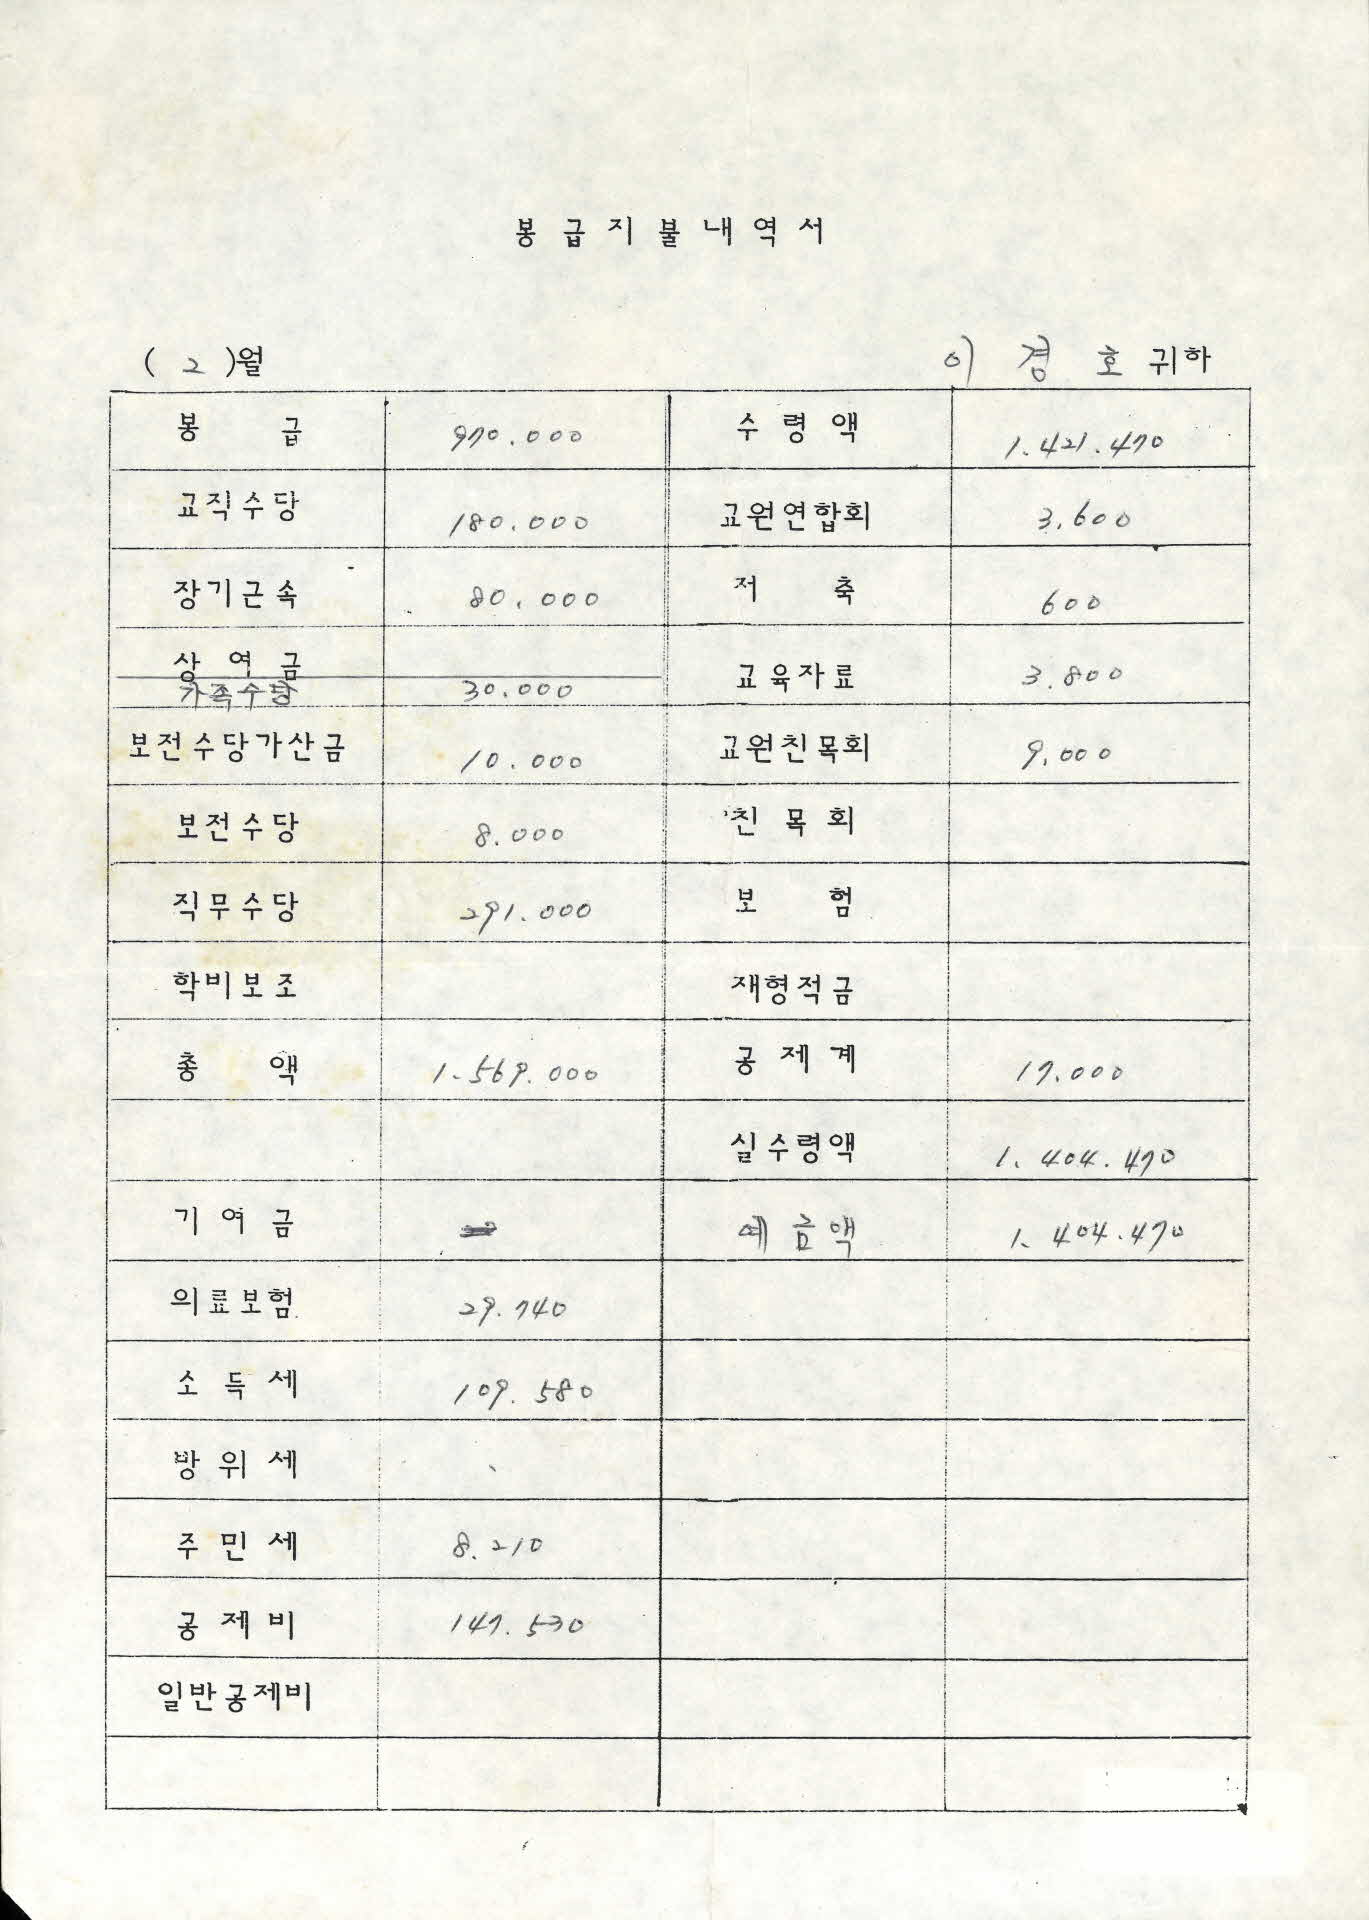 봉급지불내역서
( 2 )월 이 경 호 귀하
봉 급 970.000 수령액 1.421.470
교직수당 180.000 교원연합회 3.600
장기근속 80.000 저 축 600
상여금 교육자료 3.800
가족수당 30.000
보전수당가산금 10.000 교원친목회 9.000
보전수당 8.000 친목회
직무수당 291.000 보 험
학비보조 재형적금
총 액 1.569.000 공제계 17.000
실수령액 1.404.470
기여금 예금액 1.404.470
의료보험 29.740
소득세 109.580
방위세
주민세 8.210
공제비 147.530
일반공제비